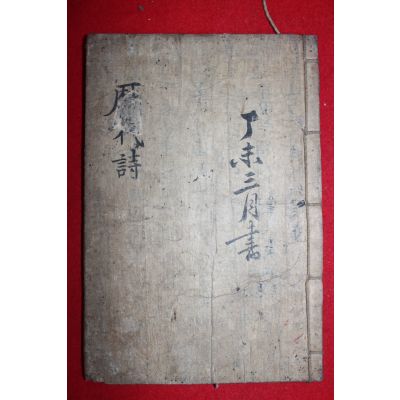 丁未三月書
歷代詩